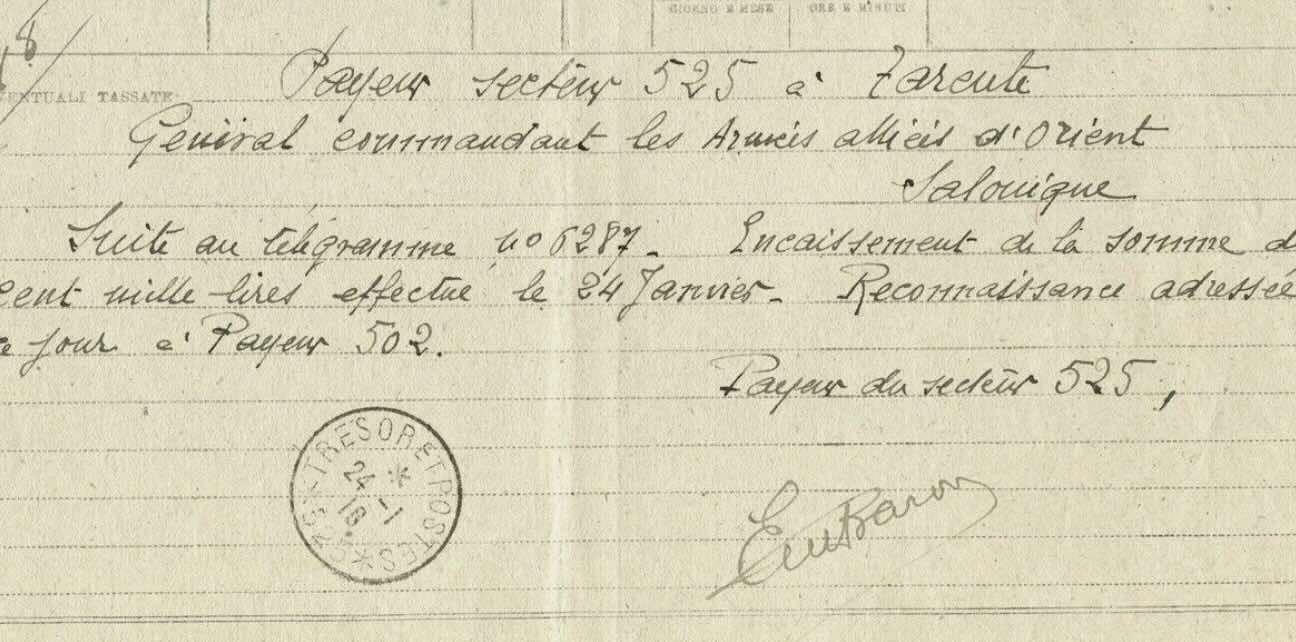 GIORNO E MESE ORE E MINUTI
8
ENTUALI TASSATE
Payeur secteur 525 à Tarente
Général commandant les Armées alliées d'Orient
Salonique
Suite au télégramme no 6287. Encaissement de la somme d
Cent mille lires effectué le 24 Janvier. Reconnaissance adressée
jour à Payeur 502.
Payeur du secteur 525,
TRESOR ET POSTES * 525 *
24 -1
18